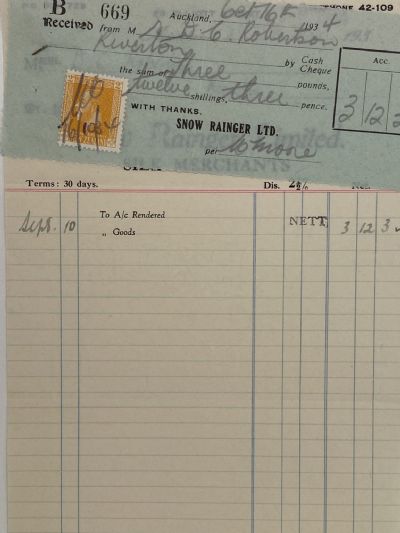 B 669 PHONE 42-109
Auckland, Oct 16th 1934
Received from M D. C. Robertson
Riverton by Cash
Cheque Acc.
the sum of Three pounds,
twelve shillings, three pence. 3 12 3
WITH THANKS.
SNOW RAINGER LTD.
per
SILK MERCHANTS
Terms: 30 days. Dis. 2½%
To A/c Rendered
Sept. 10 „ Goods NETT 3 12 3